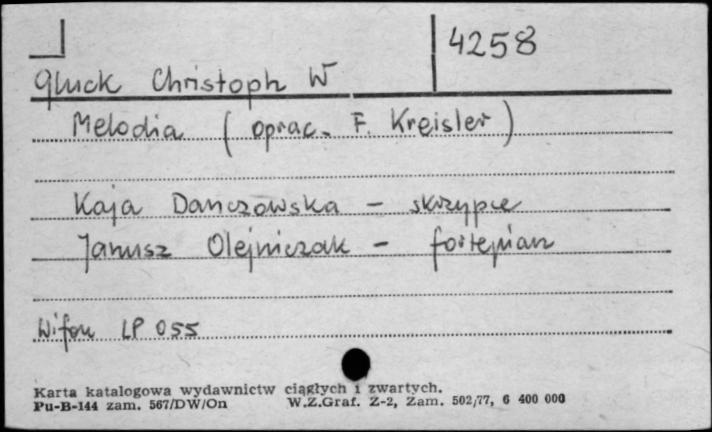 4258
Gluck Christoph W
Melodia (oprac. F. Kreisler)
Kaja Danczowska – skrzypce
Janusz Olejniczak – fortepian
Wifon LP 055
Karta katalogowa wydawnictw ciągłych i zwartych.
Pu-B-144 zam. 567/DW/On W.Z.Graf. Z-2, Zam. 502/77, 6 400 000